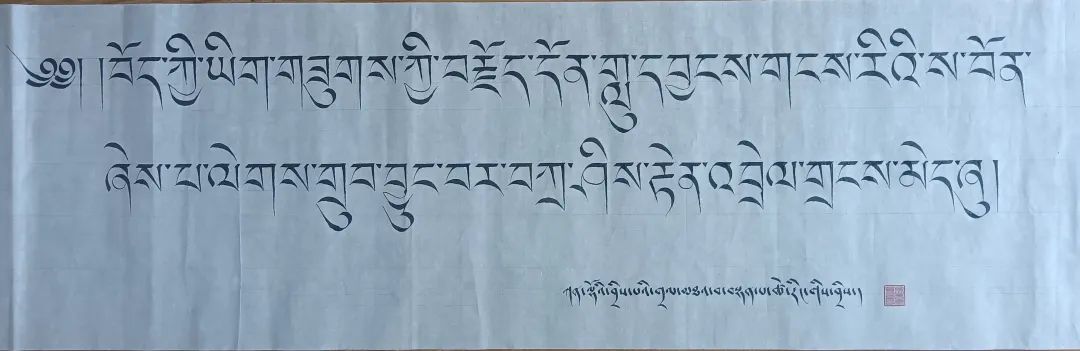 ༄༅། །བོད་ཀྱི་ཡིག་གཟུགས་ཀྱི་བརྗོད་དོན་གླུ་དབྱངས་གངས་རིའི་ས་བོན་
ཞེས་པ་ལེགས་གྲུབ་བྱུང་བར་བཀྲ་ཤིས་རྟེན་འབྲེལ་གྲངས་མེད་ཞུ།